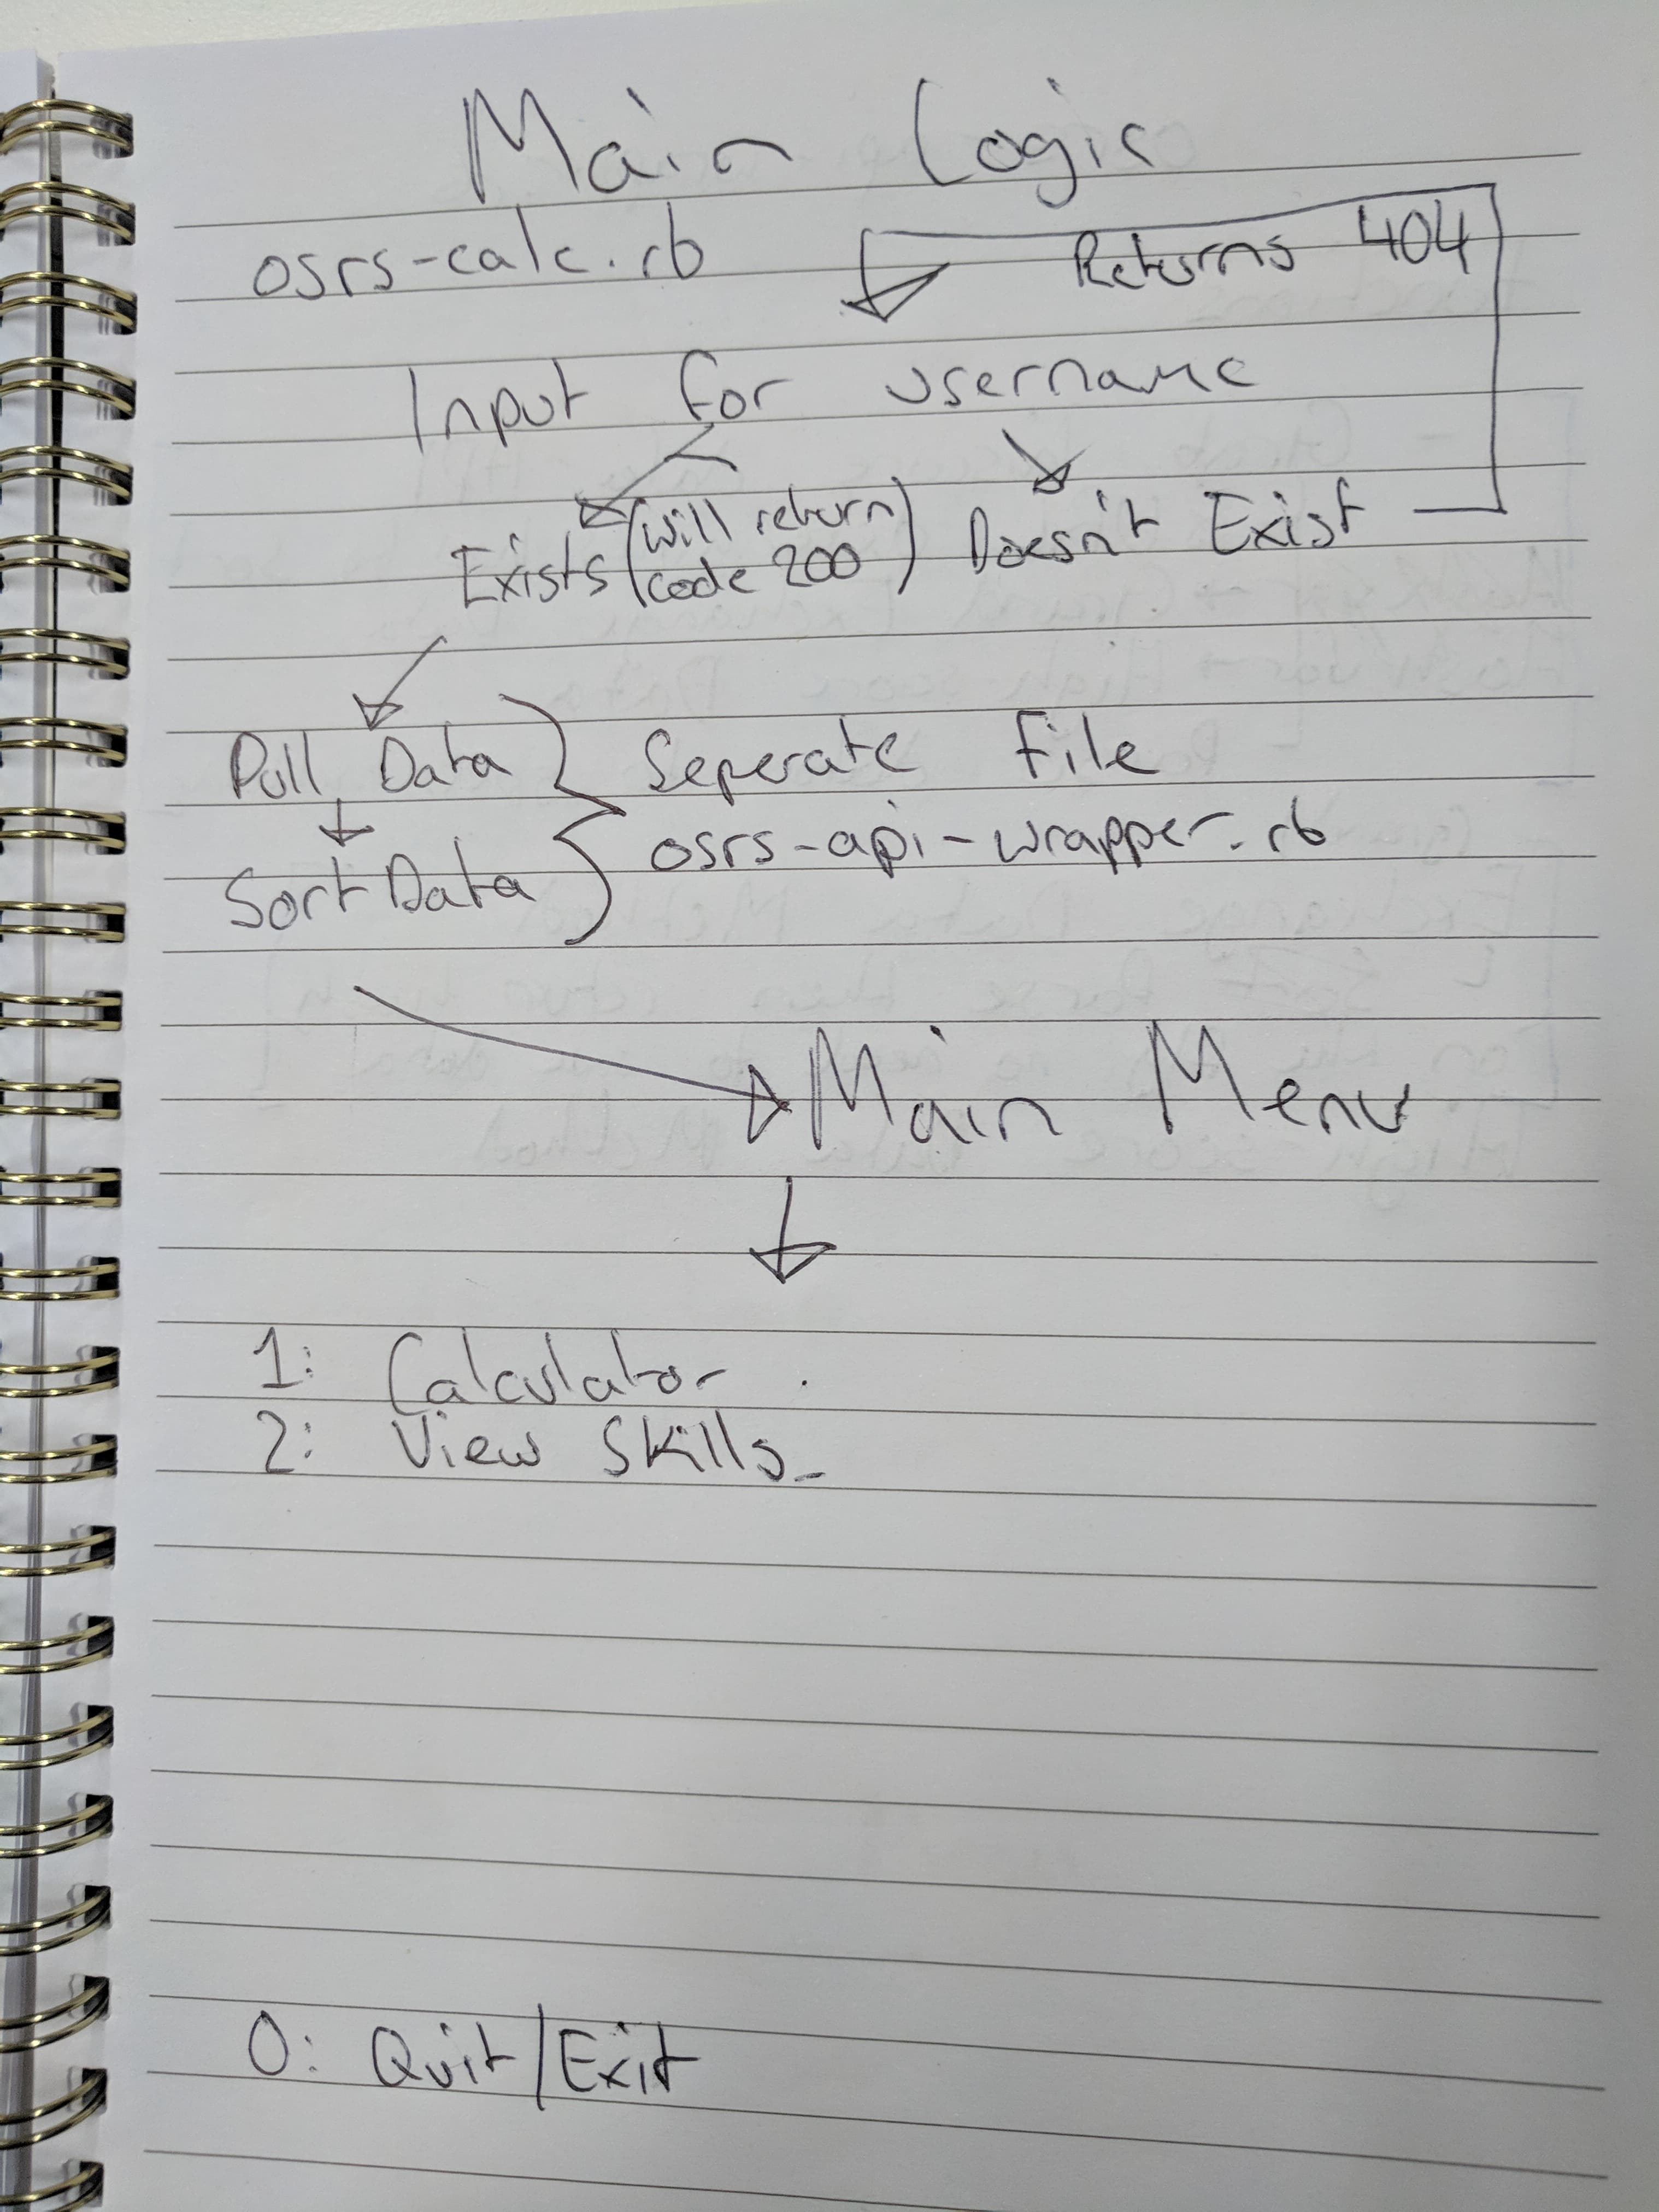 Main Logic
osrs-calc.rb
Returns 404
Input for username
Exists (will return code 200)
Doesn't Exist
Pull Data
Sort Data
Seperate File
osrs-api-wrapper.rb
Main Menu
1: Calculator
2: View Skills
0: Quit/Exit